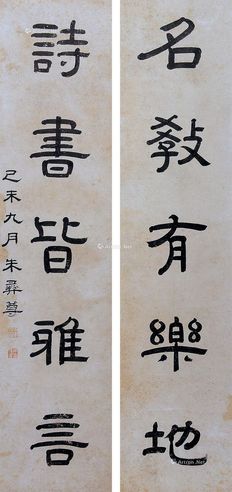 名教有樂地
詩書皆雅言
己未九月朱彝尊
Artron.Net